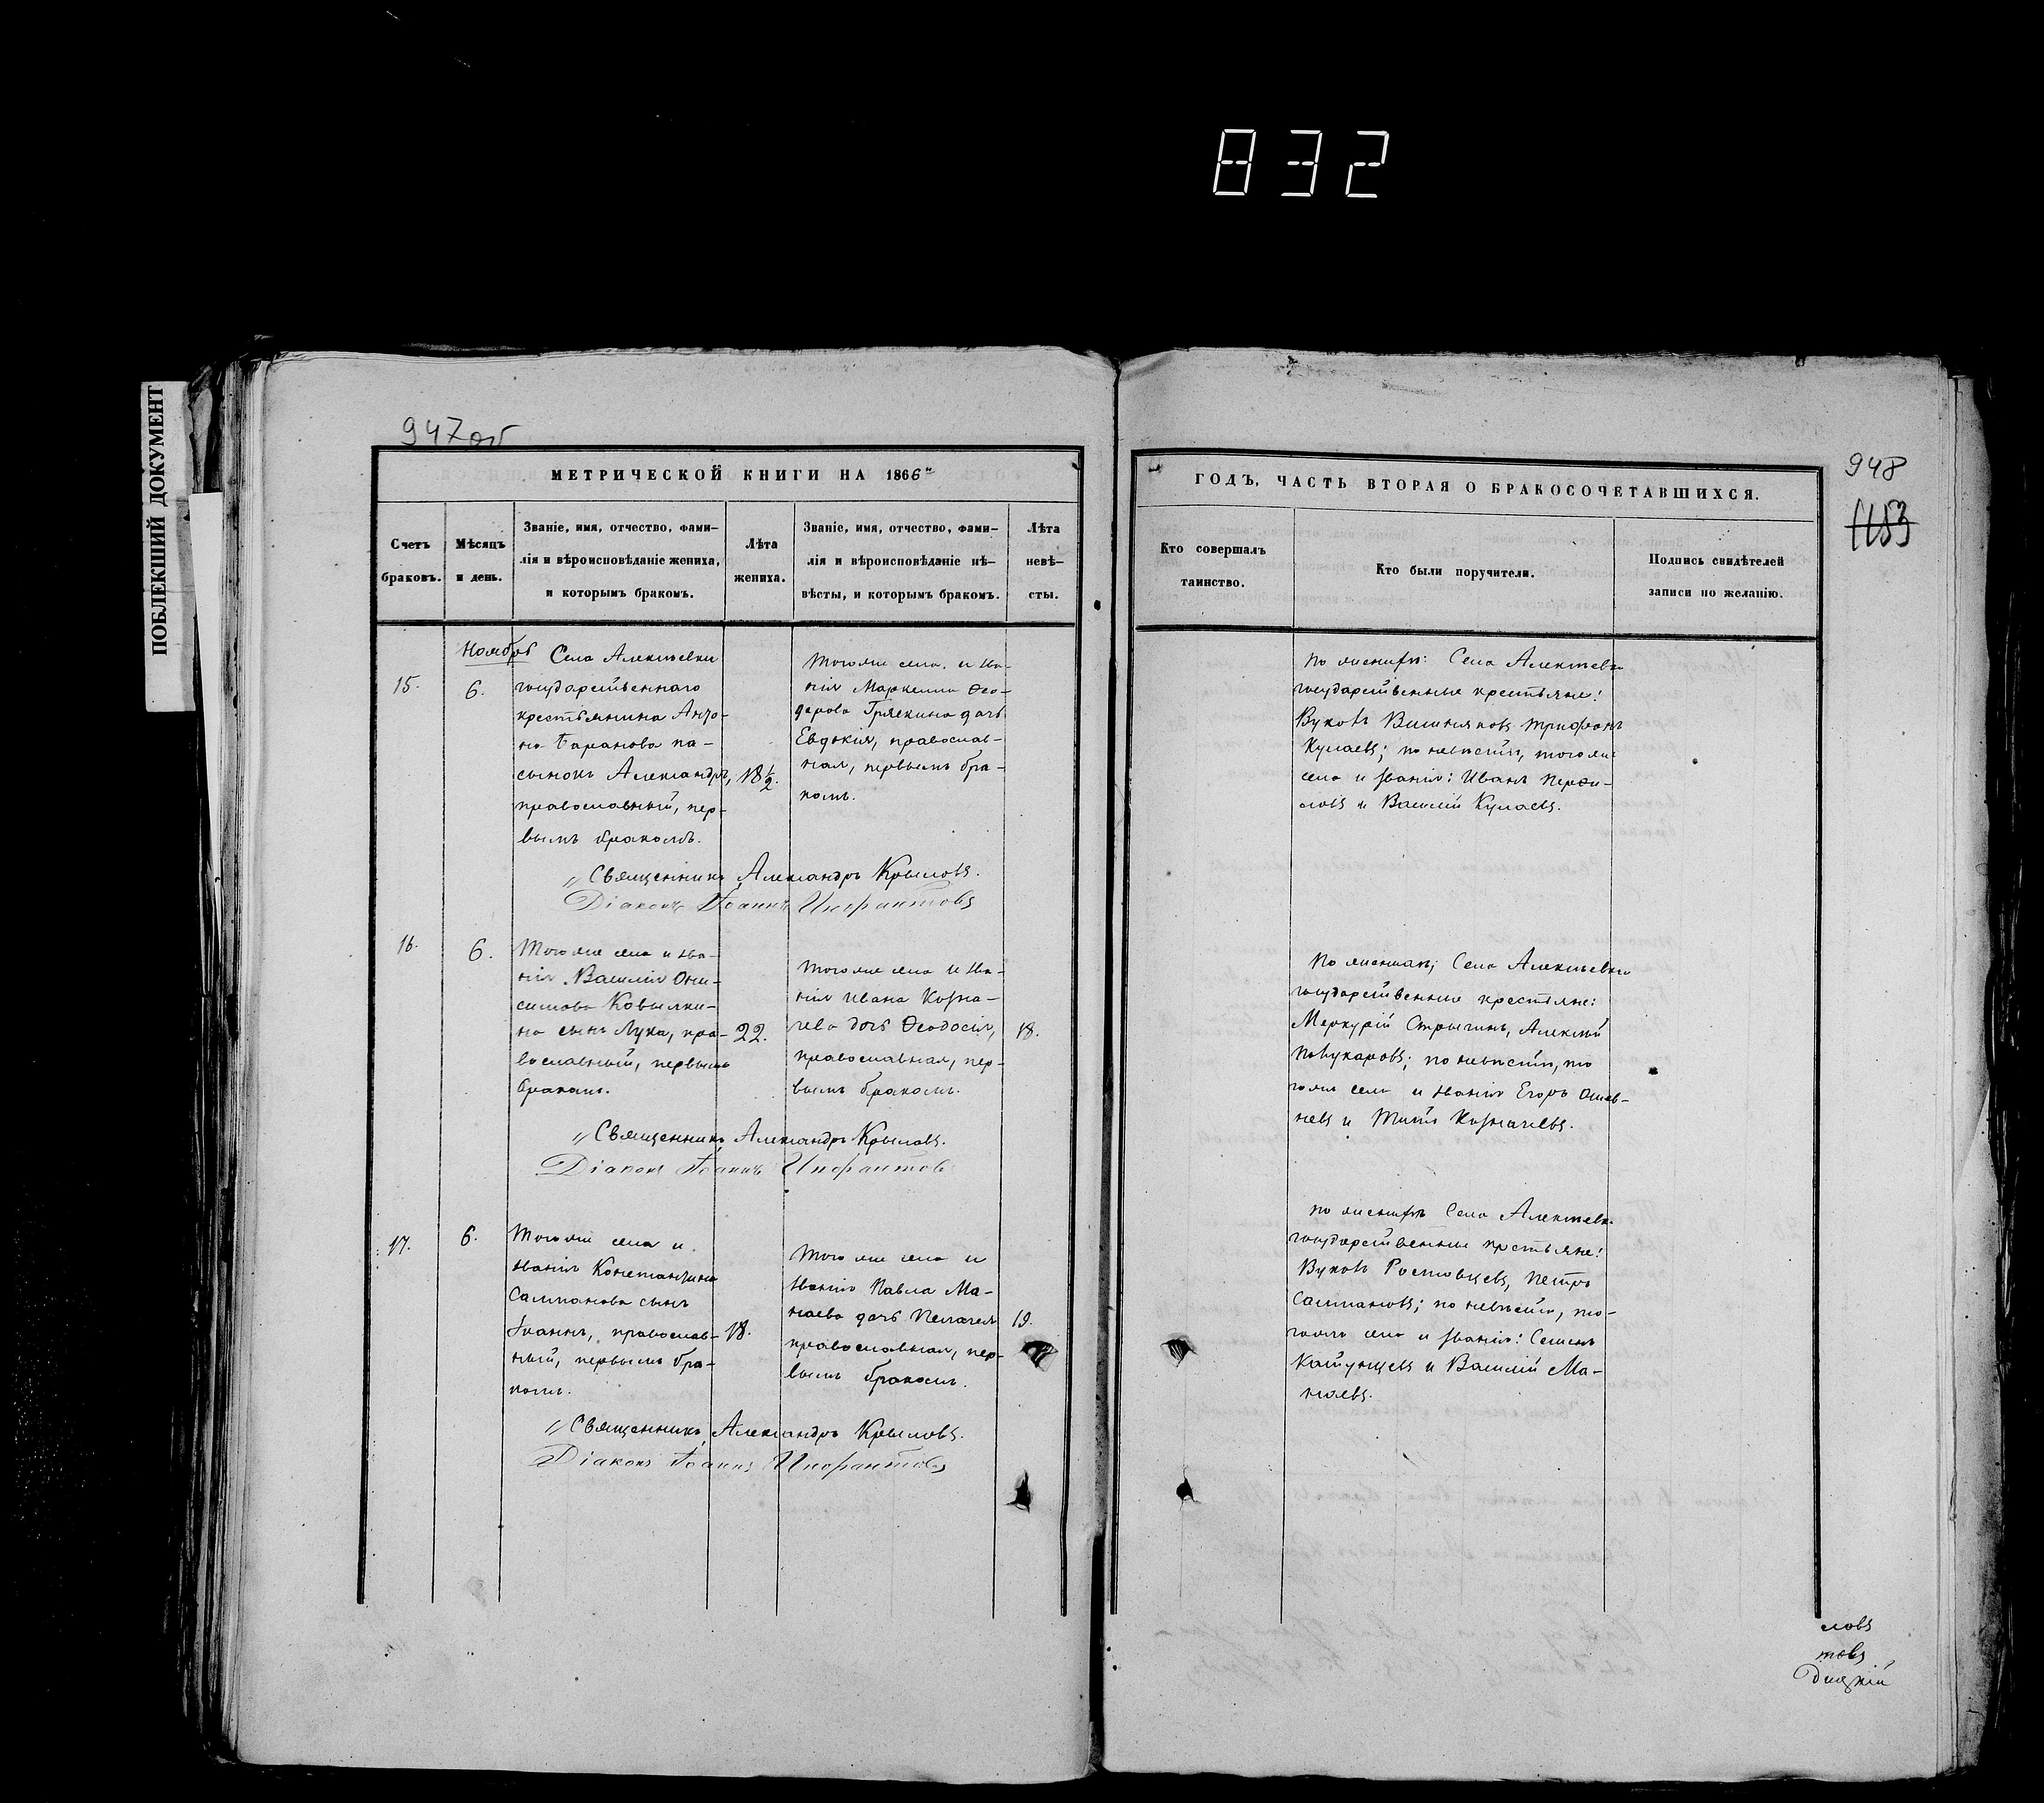 832
ПОБЛЕКШИЙ ДОКУМЕНТ
947 об
МЕТРИЧЕСКОЙ КНИГИ НА 1866
Счетъ
браковъ.
Мѣсяцъ
и день.
Званіе, имя, отчество, фами-
лія и вѣроисповѣданіе жениха,
и которымъ бракомъ.
Лѣта
жениха.
Званіе, имя, отчество, фами-
лія и вѣроисповѣданіе нѣ-
вѣсты, и которымъ бракомъ.
Лѣта
невѣ-
сты.
Ноябрь
15.
6.
Села Алексѣевки
государственнаго
крестьянина
Баранова па-
сынокъ Александръ,
православный, пер-
вымъ бракомъ.
18½.
Того же села и зва-
нія Маркелла Ѳео-
дорова дочь
Евдокія, православ-
ная, первымъ бра-
комъ.
Священникъ Александръ Крыловъ.
Діаконъ Іоаннъ
16.
6.
Того же села и зва-
нія Василія Они-
симова Ковылки-
на сынъ Лука, пра-
вославный, первымъ
бракомъ.
22.
Того же села и зва-
нія Ивана Казна-
чева дочь Ѳеодосія,
православная, пер-
вымъ бракомъ.
18.
Священникъ Александръ Крыловъ.
Діаконъ Іоаннъ
17.
6.
Того же села и
званія Константина
Салманова сынъ
Іоаннъ, православ-
ный, первымъ бра-
комъ.
18.
Того же села и
званія Павла Ма-
наева дочь Пелагея
православная, пер-
вымъ бракомъ.
19.
Священникъ Александръ Крыловъ.
Діаконъ Іоаннъ
948
1153
ГОДЪ, ЧАСТЬ ВТОРАЯ О БРАКОСОЧЕТАВШИХСЯ.
Кто совершалъ
таинство.
Кто были поручители.
Подпись свидѣтелей
записи по желанію.
По женихѣ: Села Алексѣевки
государственные крестьяне:
Вишняковъ Трифонъ
Кулаевъ; по невѣстѣ, того же
села и званія: Иванъ Перфи-
ловъ и Василій Кулаевъ.
По женихѣ; Села Алексѣевки
государственные крестьяне:
Меркурій Стрыгинъ, Алексѣй
по невѣстѣ, то
гоже села и званія Егоръ
невъ и Титъ Казначевъ.
По женихѣ Села Алексѣевки
государственные крестьяне:
Ростовцевъ, Петръ
Салмановъ; по невѣстѣ, то-
гоже села и званія: Семенъ
и Василій Ма-
наевъ.
ловъ
товъ